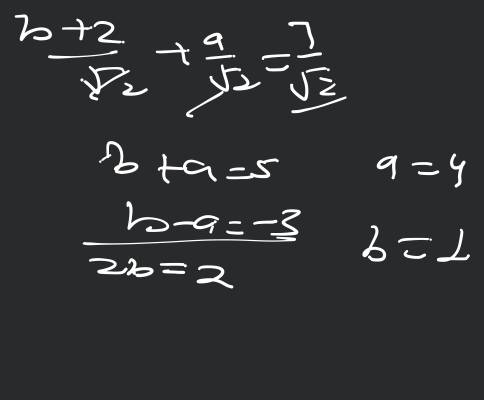 b+2/√2 + a/√2 = 7/√2
b+a=5 a=4
b-a=-3 b=1
2b=2